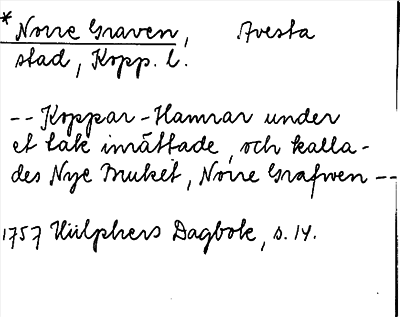 * Norre Graven, Avesta
stad, Kopp. l.
-- Koppar-Hamrar under
et tak inrättade, och kalla-
des Nye Bruket, Norre Grafwen --
1757 Hülphers Dagbok, s. 14.